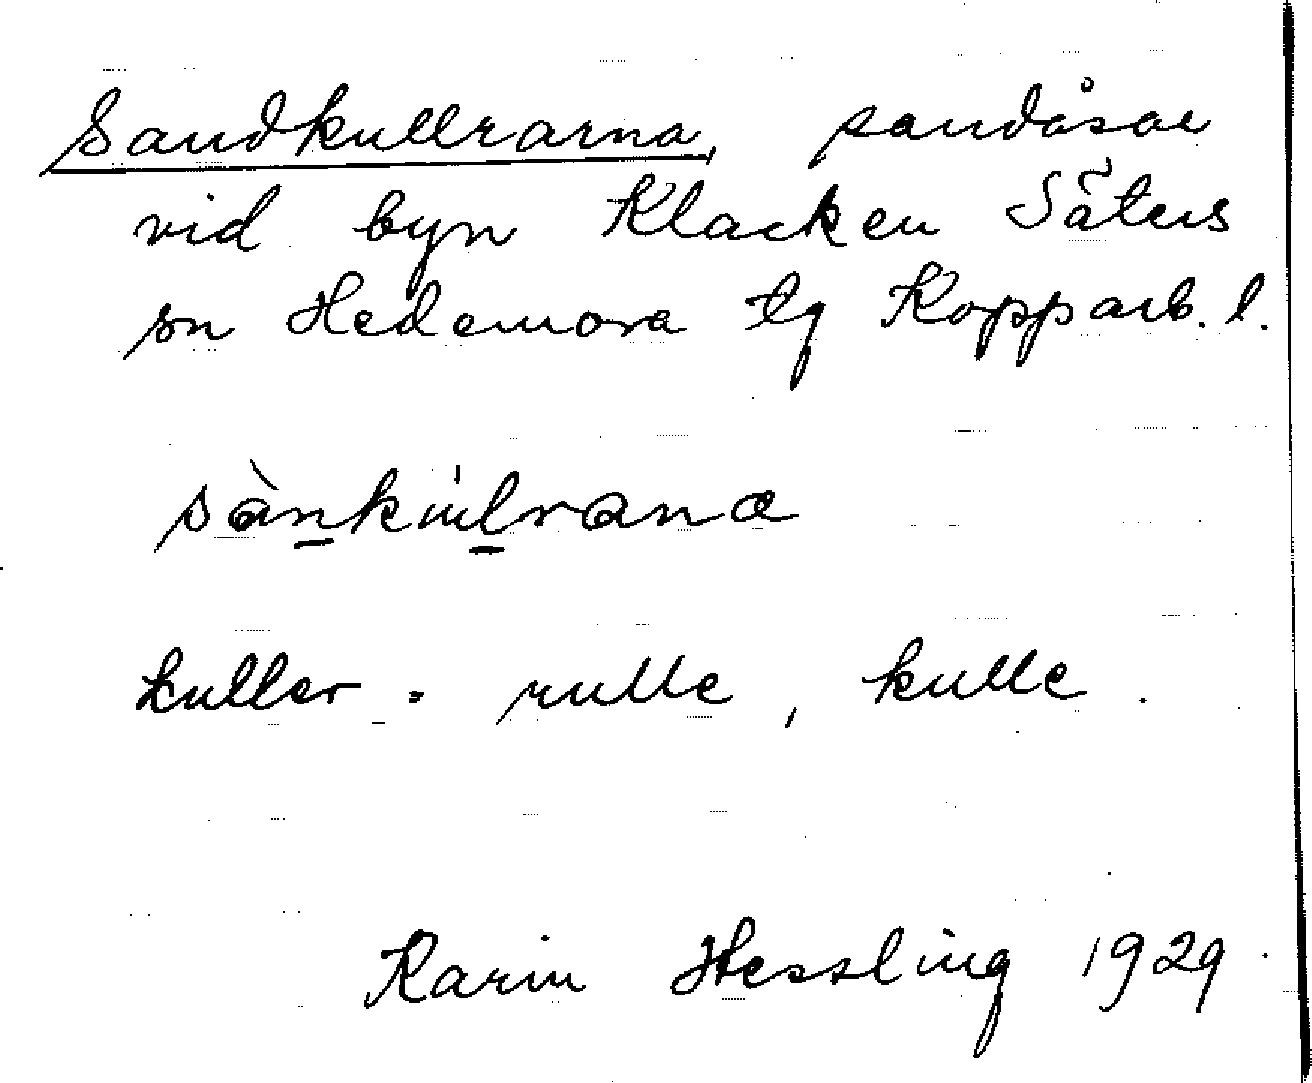 Sandkullrarna, sandåsar
vid byn Klacken Säters
sn Hedemora tg Kopparb. l.
sànkúlrana
kuller = rulle, kulle.
Karin Hessling 1929